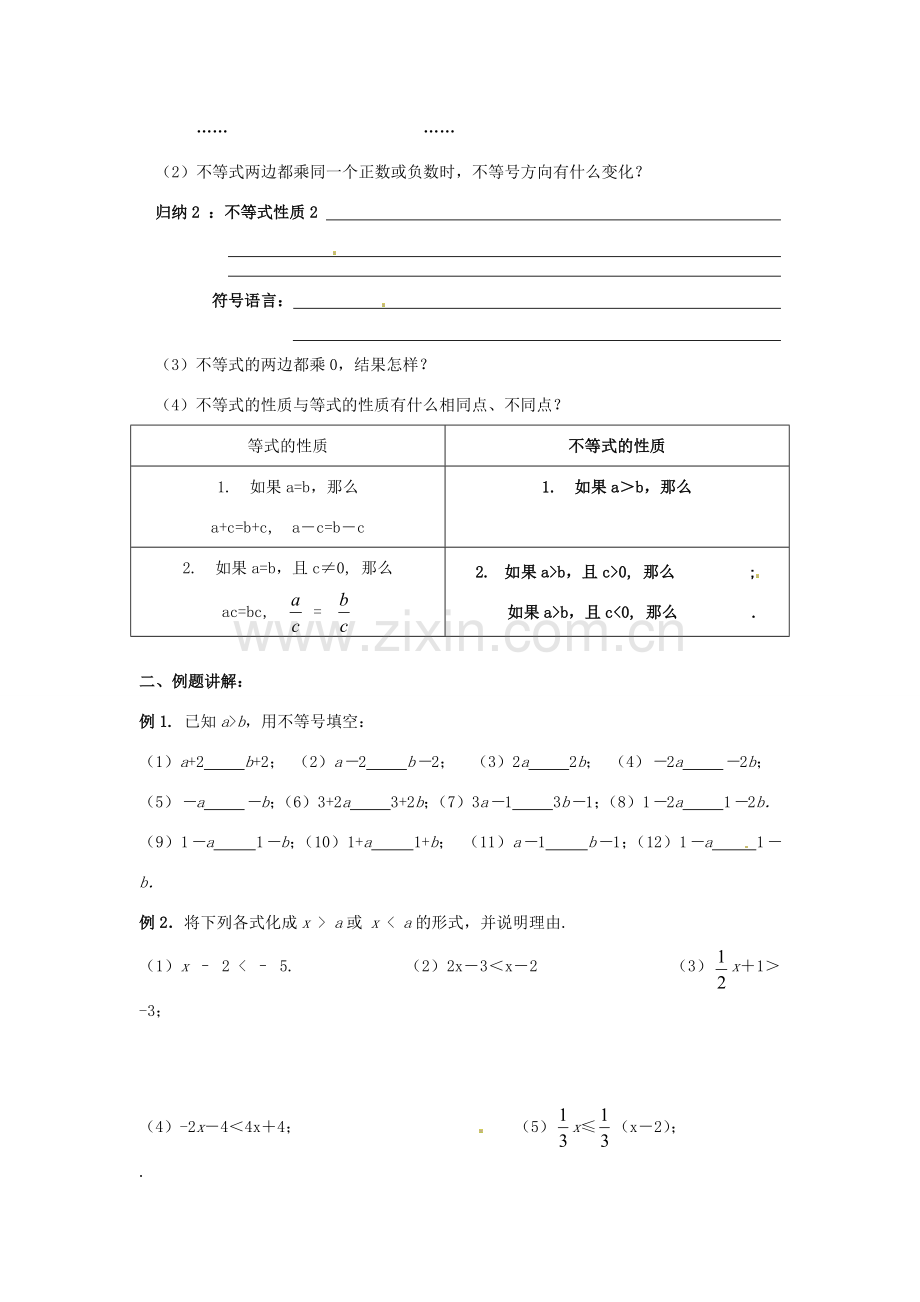 ……　　……
（2）不等式两边都乘同一个正数或负数时，不等号方向有什么变化？
归纳2 ：不等式性质2
符号语言：
（3）不等式的两边都乘0，结果怎样？
（4）不等式的性质与等式的性质有什么相同点、不同点？
等式的性质　　不等式的性质
1.　如果a=b，那么　　1.　如果a＞b，那么
a+c=b+c,　a－c=b－c
2.　如果a=b，且c≠0, 那么　　2.　如果a>b，且c>0, 那么　　;
ac=bc,　a/c = b/c　　如果a>b，且c<0, 那么　　.
www.zixin.com.cn
二、例题讲解：
例1. 已知a>b，用不等号填空：
（1）a+2_____b+2；（2）a－2_____b－2；（3）2a_____2b；（4）－2a_____－2b；
（5）－a_____－b；（6）3+2a_____3+2b；（7）3a－1_____3b－1；（8）1－2a_____1－2b.
（9）1－a_____1－b；（10）1+a_____1+b；（11）a－1_____b－1；（12）1－a_____1－
b.
例2. 将下列各式化成x > a或 x < a的形式，并说明理由.
（1）x – 2 < – 5.　　（2）2x－3＜x－2　　（3）1/2 x＋1＞
-3；
（4）-2x－4＜4x＋4；　　（5）1/3 x≤1/3（x－2）；
.